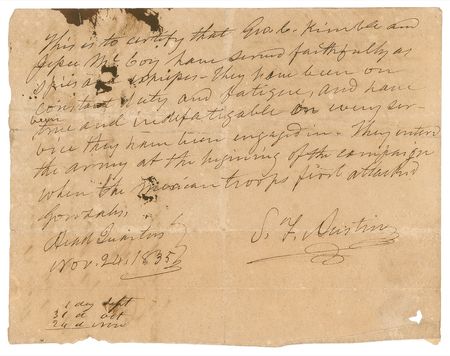 This is to certify that Geo. C. Kimble and
Jesse McCoy have served faithfully as
Spies and expresses - They have been on
constant duty and fatigue, and have
been
true and indefatigable on every ser-
vice they have been engaged in - They entered
the army at the begining of the campaign
when the Mexican troops first attacked
Gonzales,
Head Quarters
Nov. 24, 1835
S. F. Austin
1 day Sept
31 d Oct
24 d Nov